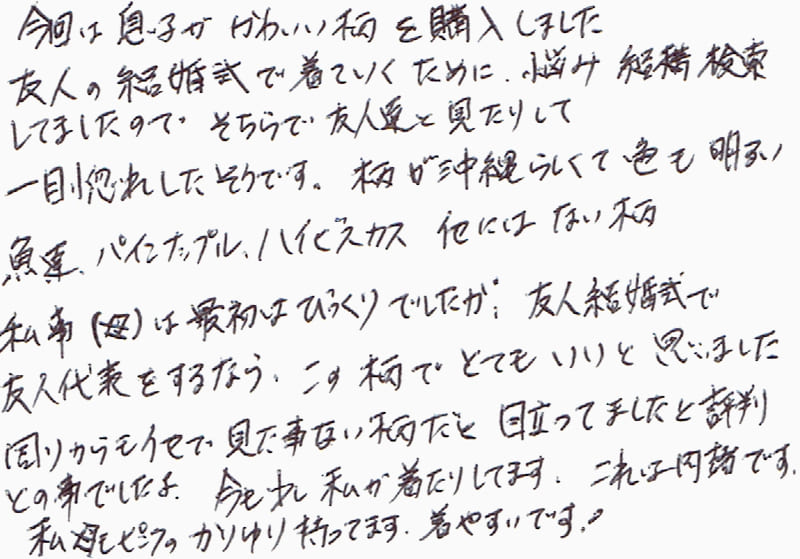 今回は息子がかわいい柄を購入しました
友人の結婚式で着ていくために、悩み 結構検索
してましたので そちらで友人達と見たりして
一目惚れしたそうです。柄が沖縄らしくて色も明るい
魚達、パイナップル、ハイビスカス 他にはない柄
私事(母)は最初はびっくりでしたが、友人結婚式で
友人代表をするなら、この柄で とてもいいと思いました
周りからも他で見た事ない柄だと目立ってましたと評判
との事でしたよ 今それ私が着たりしてます、これは内緒です。
私母もピンクのかりゆり持ってます、着やすいです。